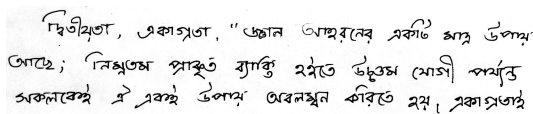 দ্বিতীয়তা, একাগ্রতা, "জ্ঞান আহরনের একটি মাত্র উপায়
আছে; নিম্নতম প্রাকৃত ব্যাক্তি হইতে উচ্চতম যোগী পর্যন্ত
সকলকেই ঐ একই উপায় অবলম্বন করিতে হয়, একাগ্রতাই